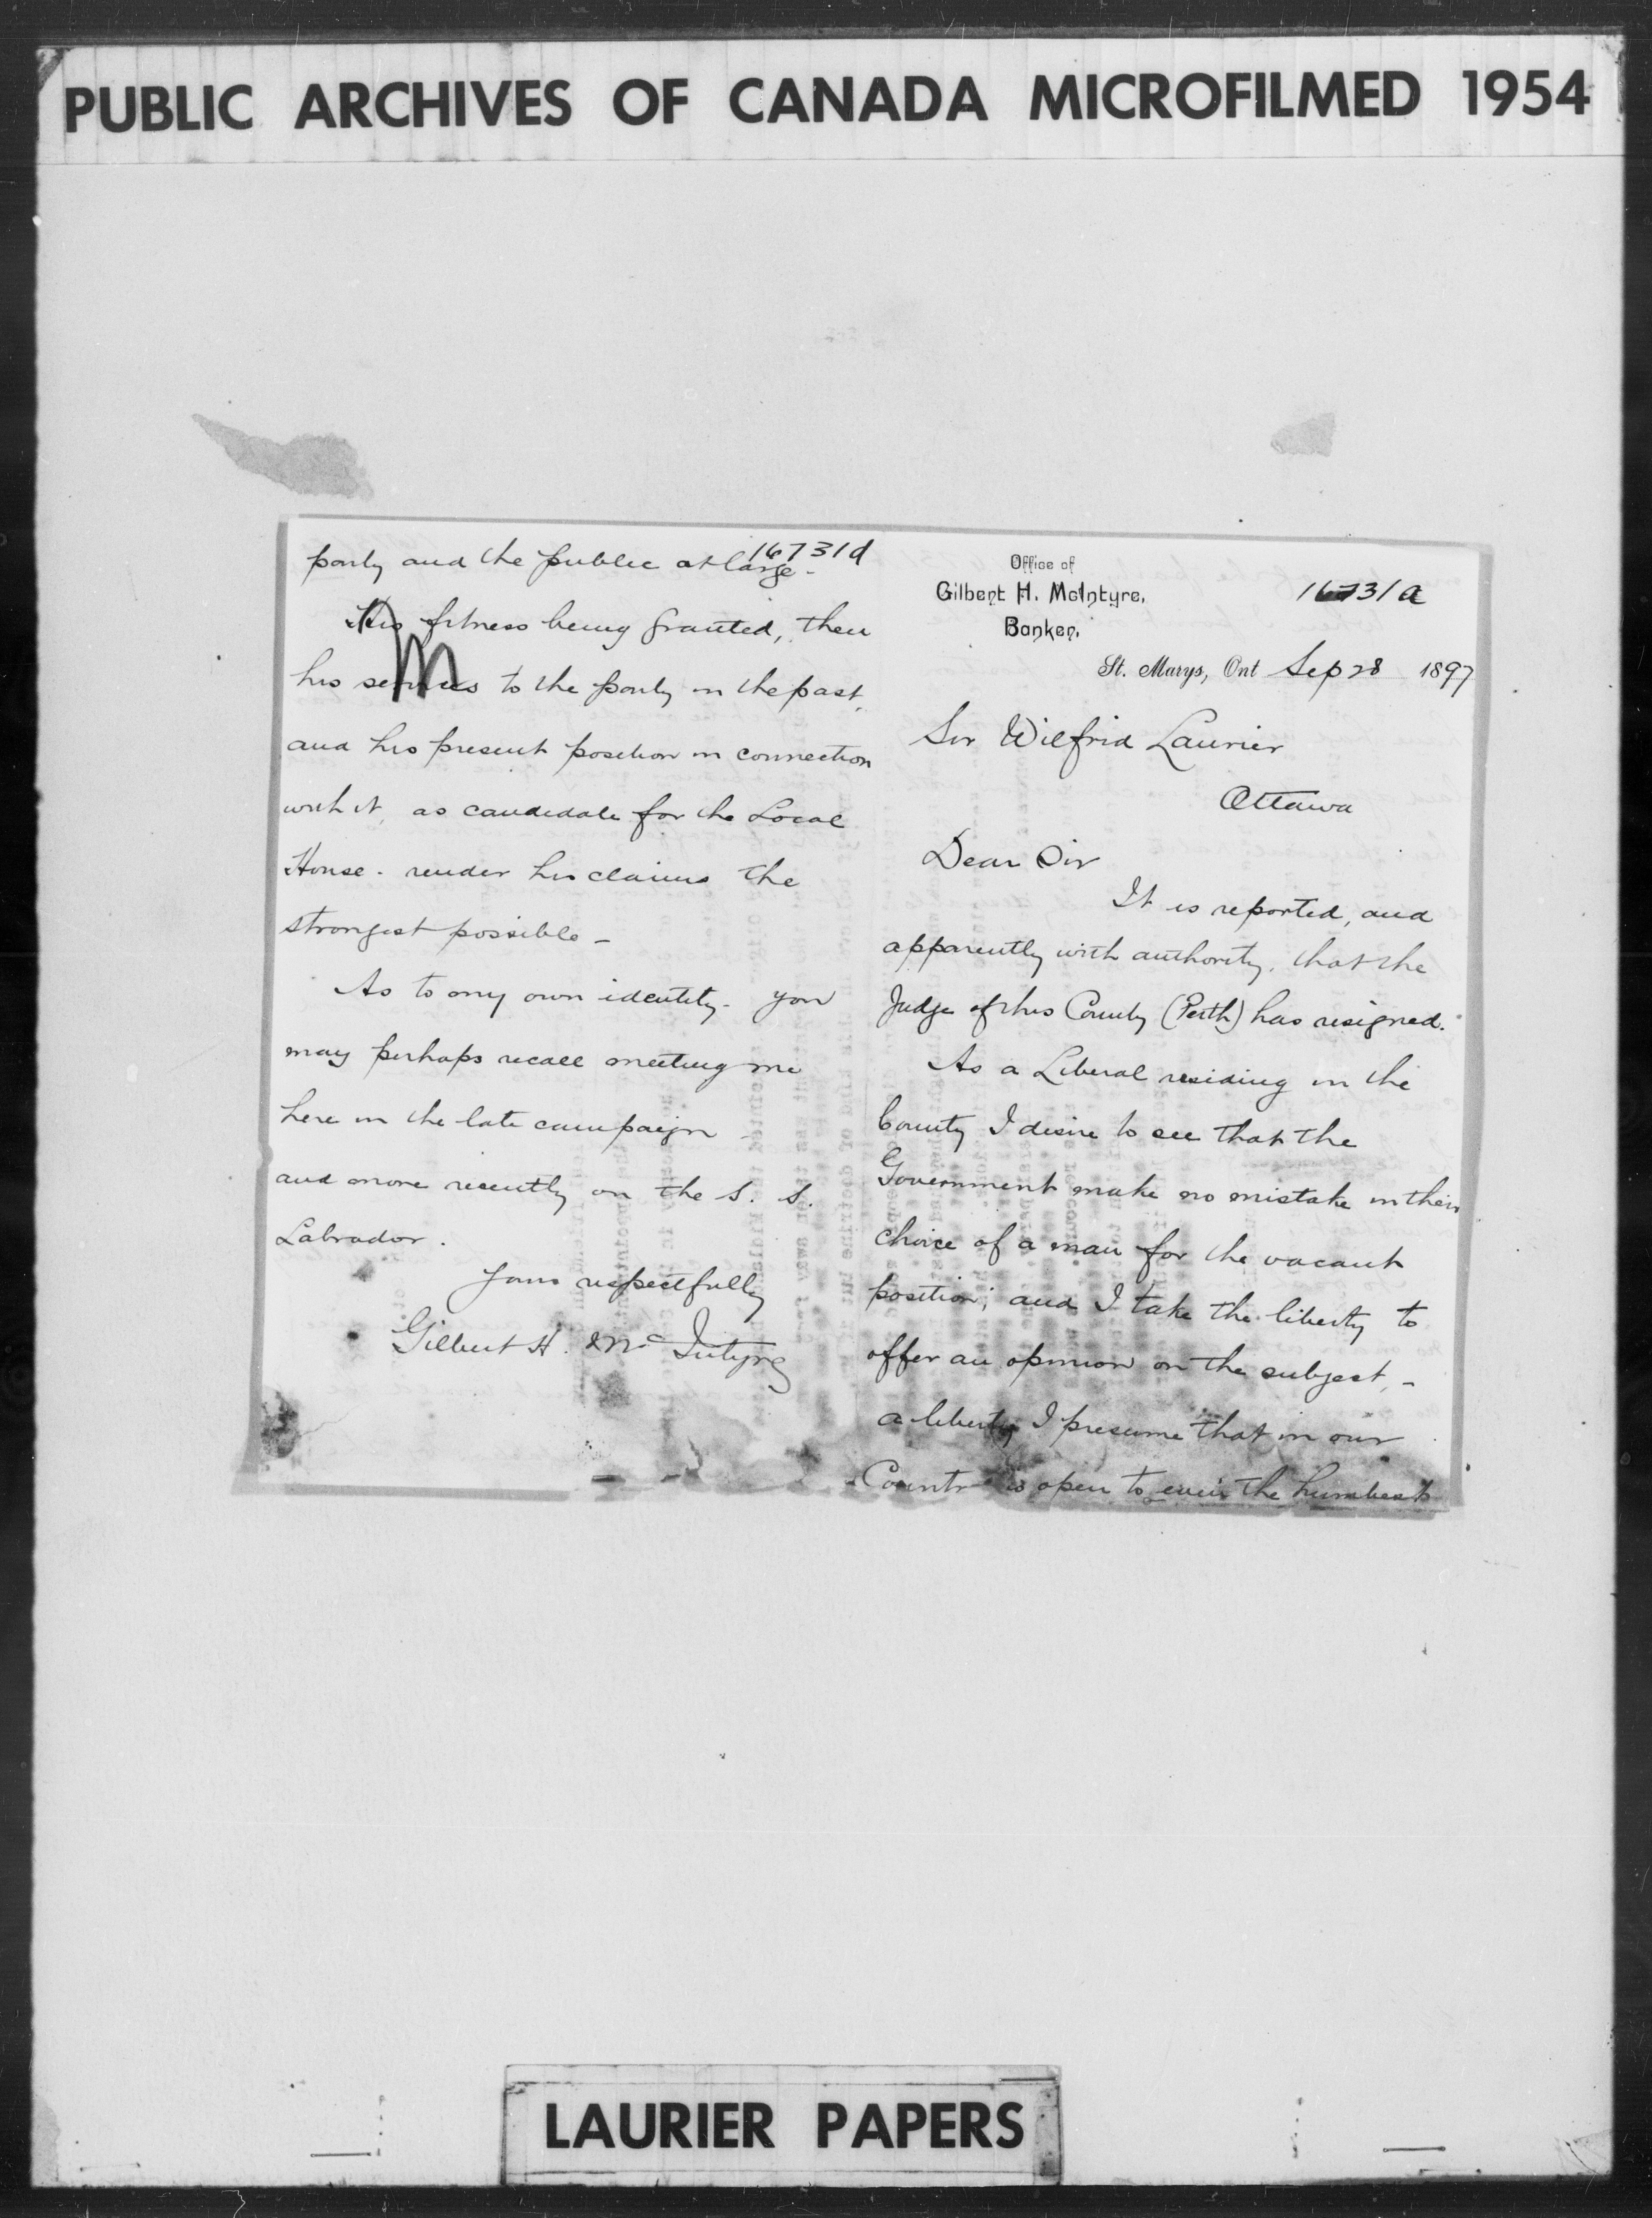 PUBLIC ARCHIVES OF CANADA MICROFILMED 1954
16731d
party and the public at large -
His fitness being granted, then
his services to the party in the past,
and his present position in connection
with it, as candidate for the Local
House - render his claims the
strongest possible -
As to my own identity - you
may perhaps recall meeting me
here in the late campaign -
and more recently on the S. S.
Labrador.
Yours respectfully
Gilbert H. McIntyre
M
Office of
Gilbert H. McIntyre,
Banker,
16731a
St. Marys, Ont Sep 28 1897
Sir Wilfrid Laurier
Ottawa
Dear Sir
It is reported, and
apparently with authority, that the
Judge of this County (Perth) has resigned.
As a Liberal residing in the
County I desire to see that the
Government make no mistake in their
choice of a man for the vacant
position; and I take the liberty to
offer an opinion on the subject, -
a liberty I presume that in our
Country is open to even the humblest
LAURIER PAPERS